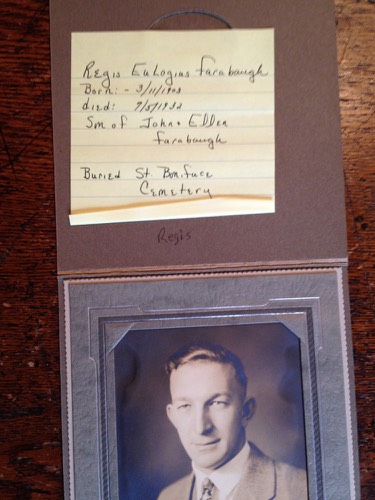 Regis Eulogius Farabaugh
Born: - 3/11/1903
died: 9/5/1932
Son of John + Ellen
Farabaugh
Buried St. Boniface
Cemetery
Regis